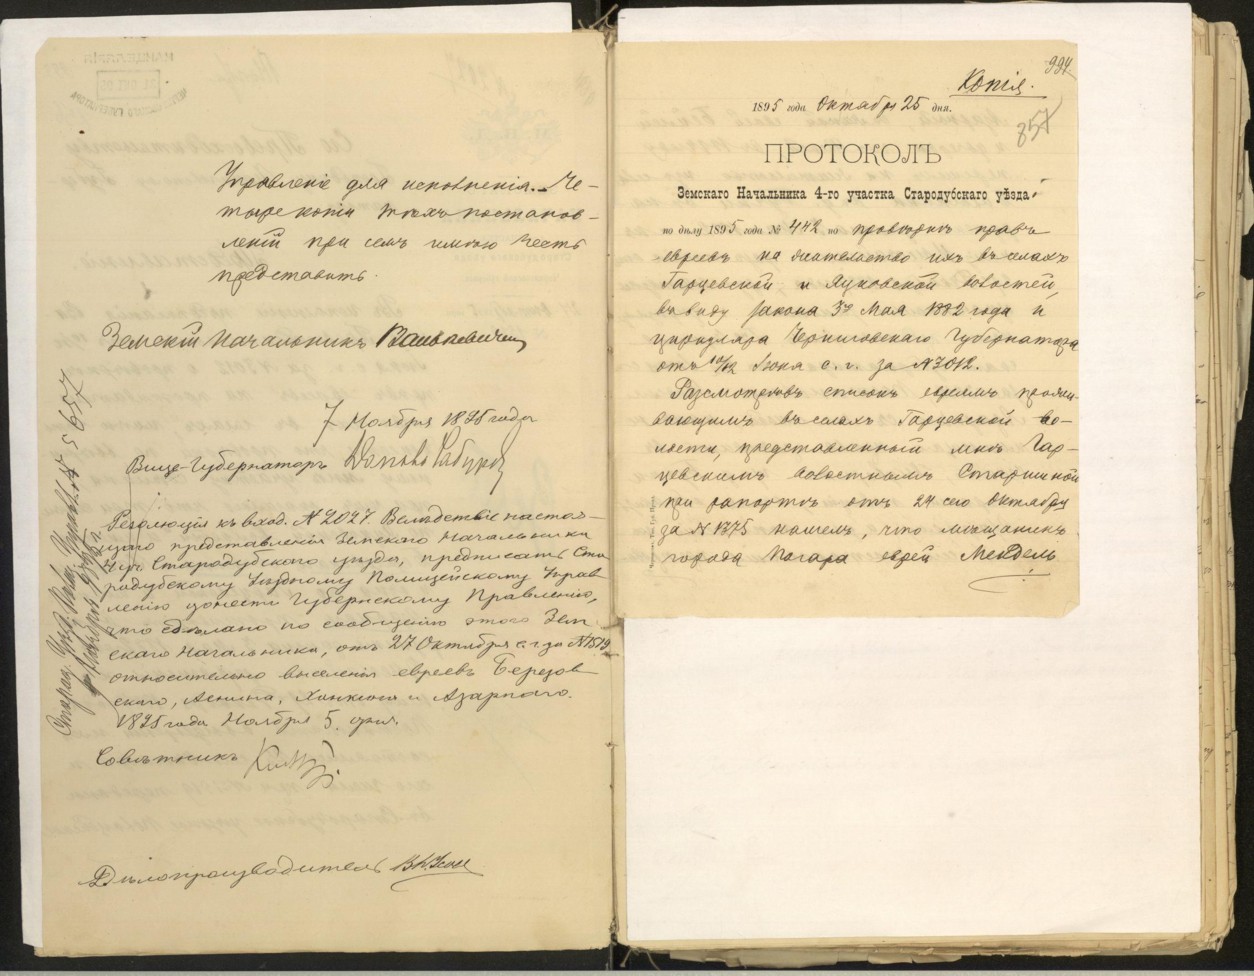 КАНЦЕЛЯРІЯ
Управленіе для исполненія. Че-
тыре копіи этихъ постанов-
леній при семъ имѣю честь
представить.
Земскій Начальникъ Ванькевичъ
7 Ноября 1895 года
Вице-Губернаторъ
Резолюція къ вход. № 2027. Вслѣдствіе настоя-
щаго представленія Земскаго Начальника
4 уч. Стародубскаго уѣзда, предписать Ста
родубскому Уѣздному Полицейскому Управ
ленію донести Губернскому Правленію,
что сдѣлано по сообщенію этого Зем
скаго Начальника, отъ 27 Октября с. г. за № 1519
относительно выселенія евреевъ Березов
скаго, Аснина, Хонкина и Азарпаго.
1895 года Ноября 5 дня.
Совѣтникъ
Дѣлопроизводитель
Старод. Уѣзд. Пол. Управл. № 5657
994
Копія.
1895 года Октября 25 дня.
857
ПРОТОКОЛЪ
Земскаго Начальника 4-го участка Стародубскаго уѣзда
по дѣлу 1895 года № 442 по провѣркѣ правъ
евреевъ на жительство ихъ въ селахъ
Гарцевской и Лужовской волостей,
въ виду закона 3го Мая 1882 года и
циркуляра Черниговскаго Губернатора
отъ 10/12 Іюня с. г. за № 3012.
Разсмотрѣвъ списокъ евреямъ прожи
вающимъ въ селахъ Гарцевской во-
лости, представленный мнѣ Гар-
цевскимъ волостнымъ Старшиной
при рапортѣ отъ 24 сего Октября
за № 1375 нашелъ, что мѣщанинъ
города Погара еврей Мендель